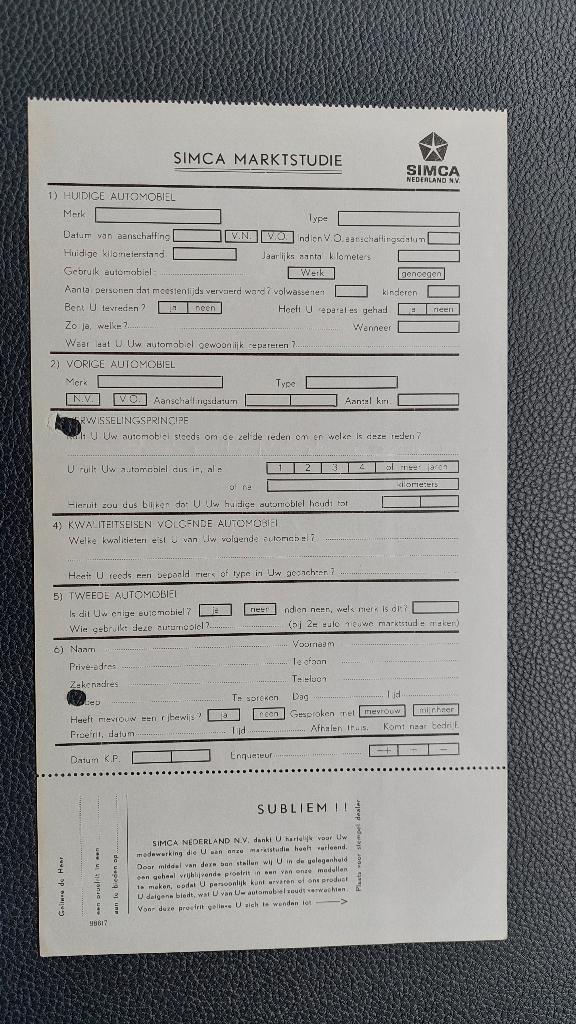 SIMCA MARKTSTUDIE
SIMCA
NEDERLAND N.V.
1) HUIDIGE AUTOMOBIEL
Merk Type
Datum van aanschaffing V.N. V.O. indien V.O. aanschaffingsdatum
Huidige kilometerstand Jaarlijks aantal kilometers
Gebruik automobiel: Werk genoegen
Aantal personen dat meestentijds vervoerd word? volwassenen kinderen
Bent U tevreden? ja neen Heeft U reparaties gehad ja neen
Zo ja, welke? Wanneer
Waar laat U Uw automobiel gewoonlijk repareren?
2) VORIGE AUTOMOBIEL
Merk Type
N.V. V.O. Aanschaffingsdatum Aantal km.
ERWISSELINGSPRINCIPE
U Uw automobiel steeds om de zelfde reden om en welke is deze reden?
U ruilt Uw automobiel dus in, alle 1 2 3 4 of meer jaren
of na kilometers
Hieruit zou dus blijken dat U Uw huidige automobiel houdt tot
4) KWALITEITSEISEN VOLGENDE AUTOMOBIEL
Welke kwalitieten eist U van Uw volgende automobiel?
Heeft U reeds een bepaald merk of type in Uw gedachten?
5) TWEEDE AUTOMOBIEL
Is dit Uw enige automobiel? ja neen Indien neen, welk merk is dit?
Wie gebruikt deze automobiel? (bij 2e auto nieuwe marktstudie maken)
6) Naam Voornaam
Privé-adres Telefoon
Zakenadres Telefoon
ep Te spreken Dag Tijd
Heeft mevrouw een rijbewijs? ja neen Gesproken met mevrouw mijnheer
Proefrit, datum Tijd Afhalen thuis. Komt naar bedrijf.
Datum K.P. Enqueteur ++ + -
SUBLIEM !!
SIMCA NEDERLAND N.V. dankt U hartelijk voor Uw
medewerking die U aan onze marktstudie heeft verleend.
Door middel van deze bon stellen wij U in de gelegenheid
een geheel vrijblijvende proefrit in een van onze modellen
te maken, opdat U persoonlijk kunt ervaren of ons product
U datgene biedt, wat U van Uw automobiel zoudt verwachten.
Voor deze proefrit gelieve U zich te wenden tot
Plaats voor stempel dealer
Gelieve de Heer
een proefrit in een
aan te bieden op
98617